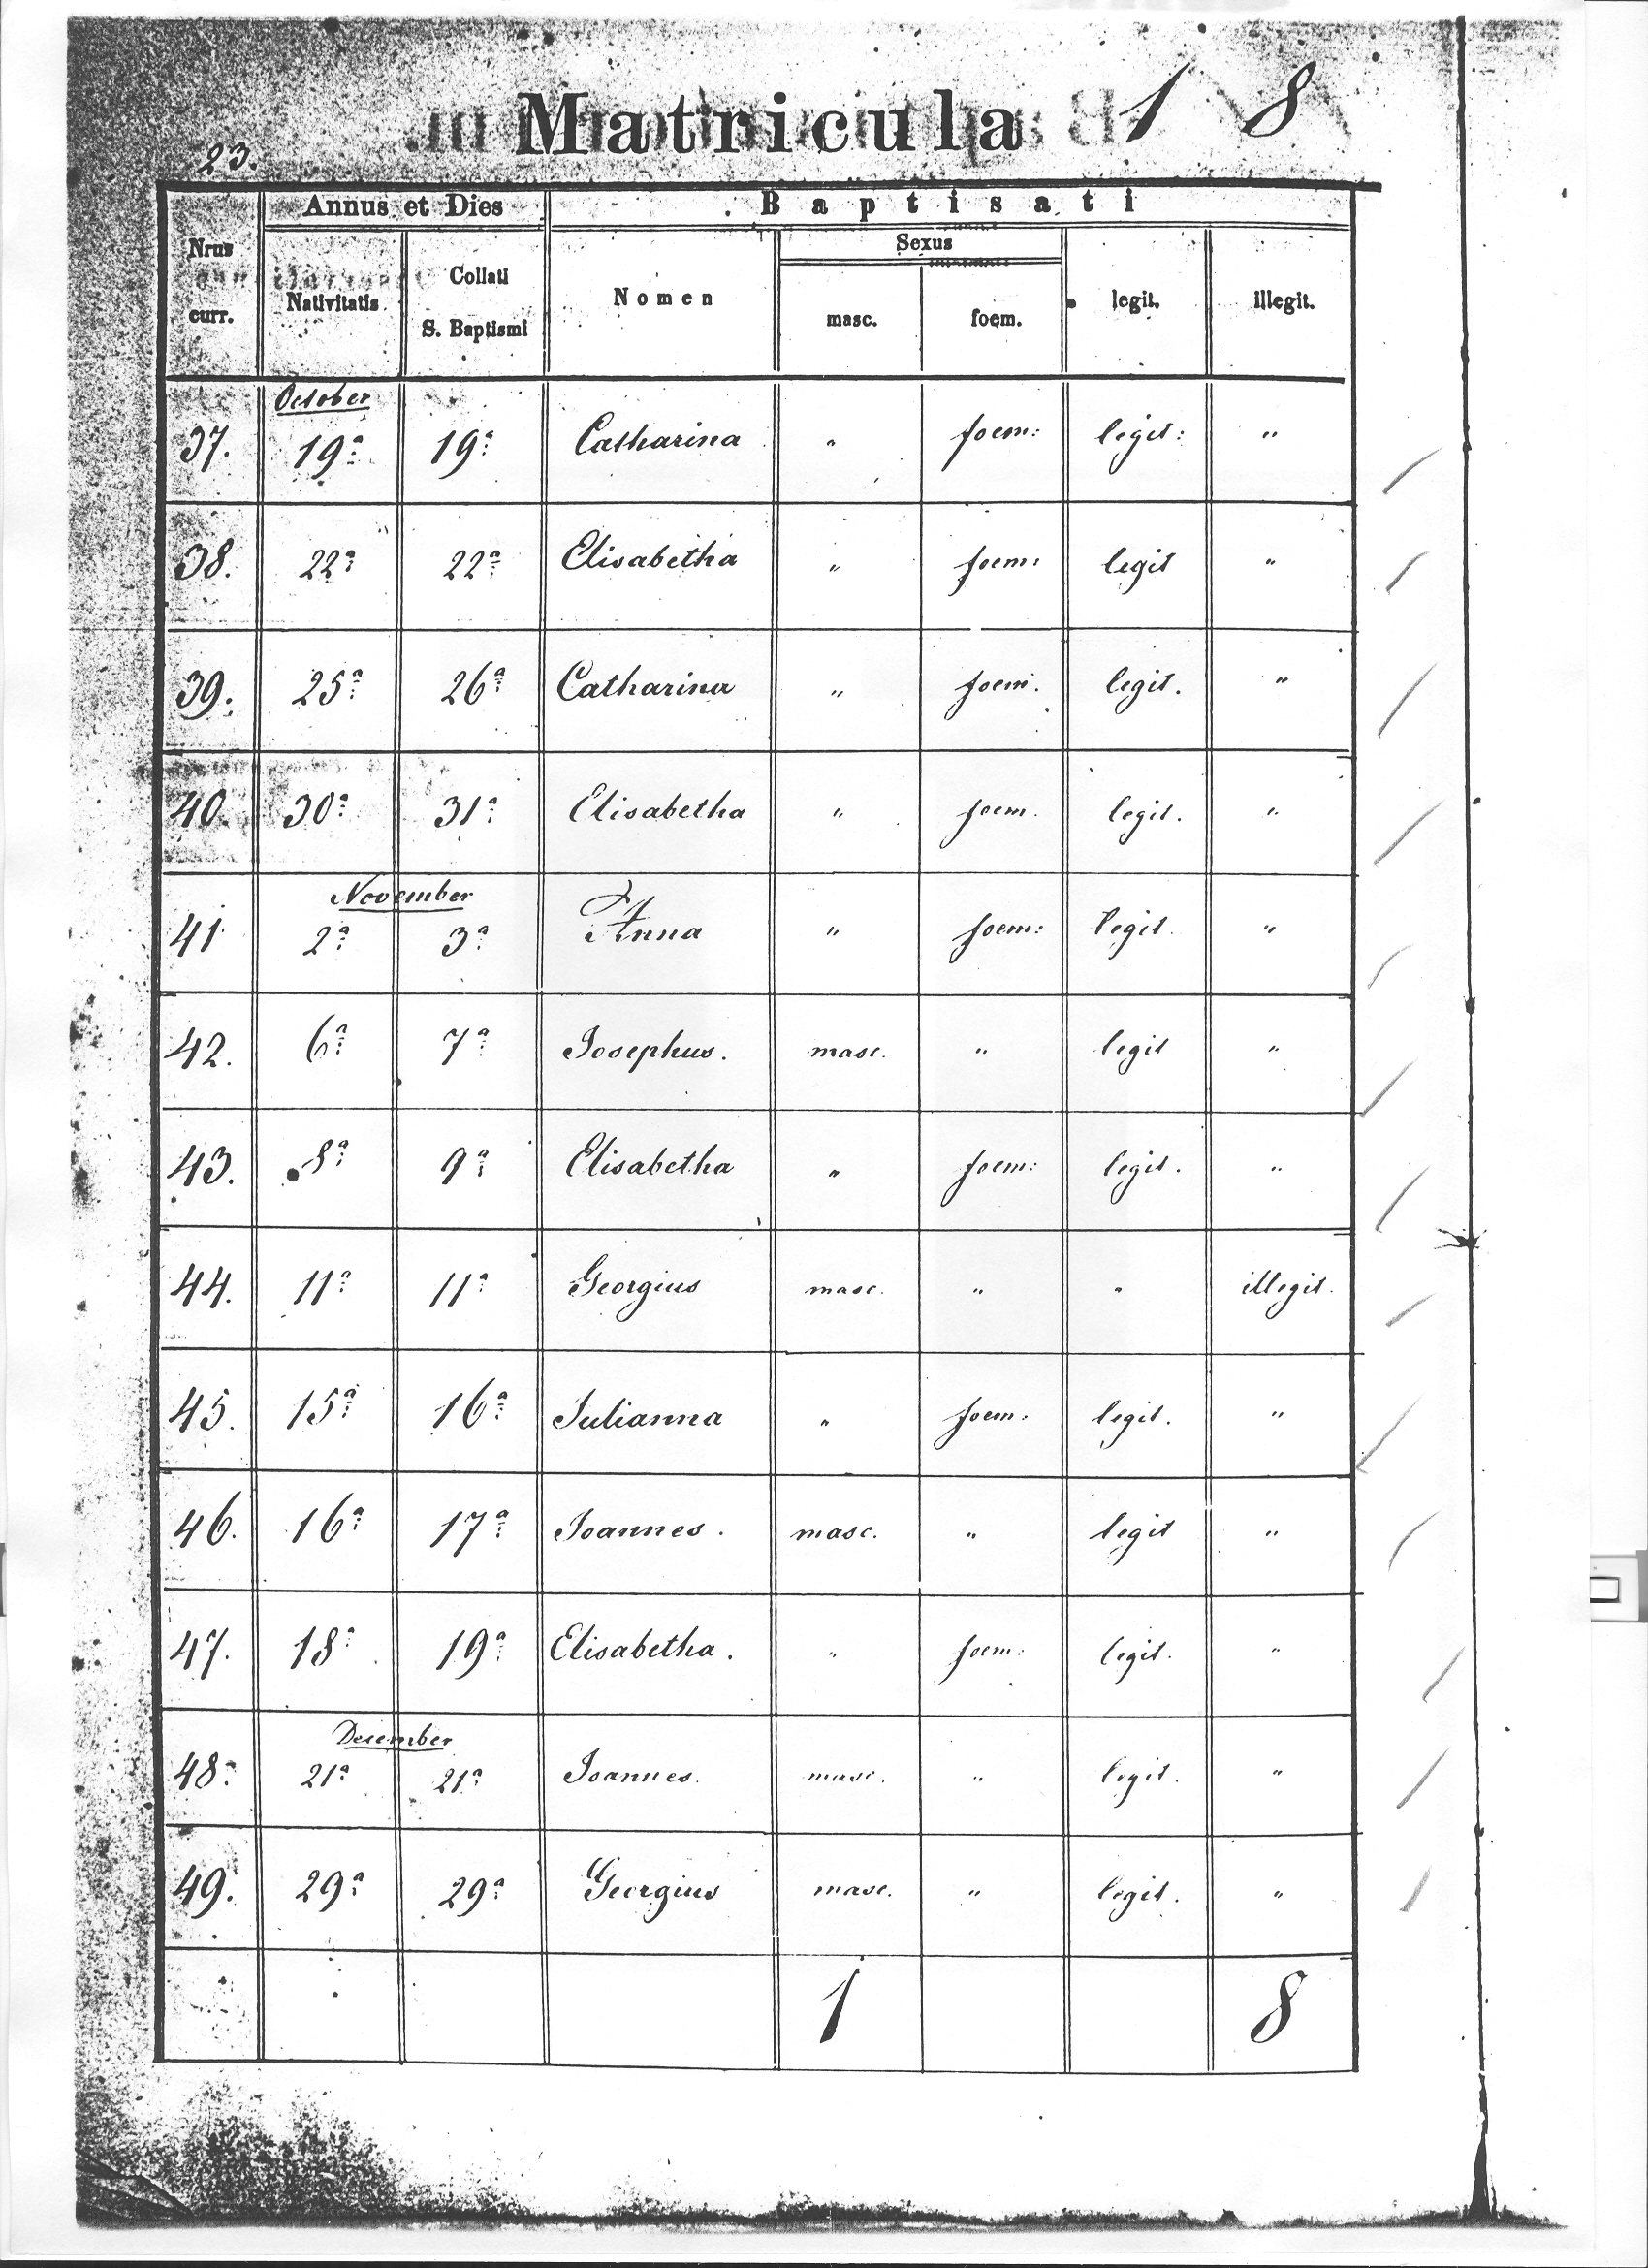 Matricula 1 8
23.
Annus et Dies Baptisati
Nrus curr. Nativitatis Collati S. Baptismi Nomen Sexus masc. foem. legit. illegit.
October
37. 19ª 19ª Catharina " foem: legit: "
38. 22ª 22ª Elisabetha " foem: legit "
39. 25ª 26ª Catharina " foem. legit. "
40. 30ª 31ª Elisabetha " foem. legit. "
November
41 2ª 3ª Anna " foem: legit. "
42. 6ª 7ª Iosephus. masc. " legit "
43. 8ª 9ª Elisabetha " foem: legit. "
44. 11ª 11ª Georgius masc. " " illegit.
45. 15ª 16ª Iulianna " foem: legit. "
46. 16ª 17ª Ioannes. masc. " legit "
47. 18ª 19ª Elisabetha. " foem: legit. "
December
48. 21ª 21ª Ioannes. masc. " legit. "
49. 29ª 29ª Georgius masc. " legit. "
1 8